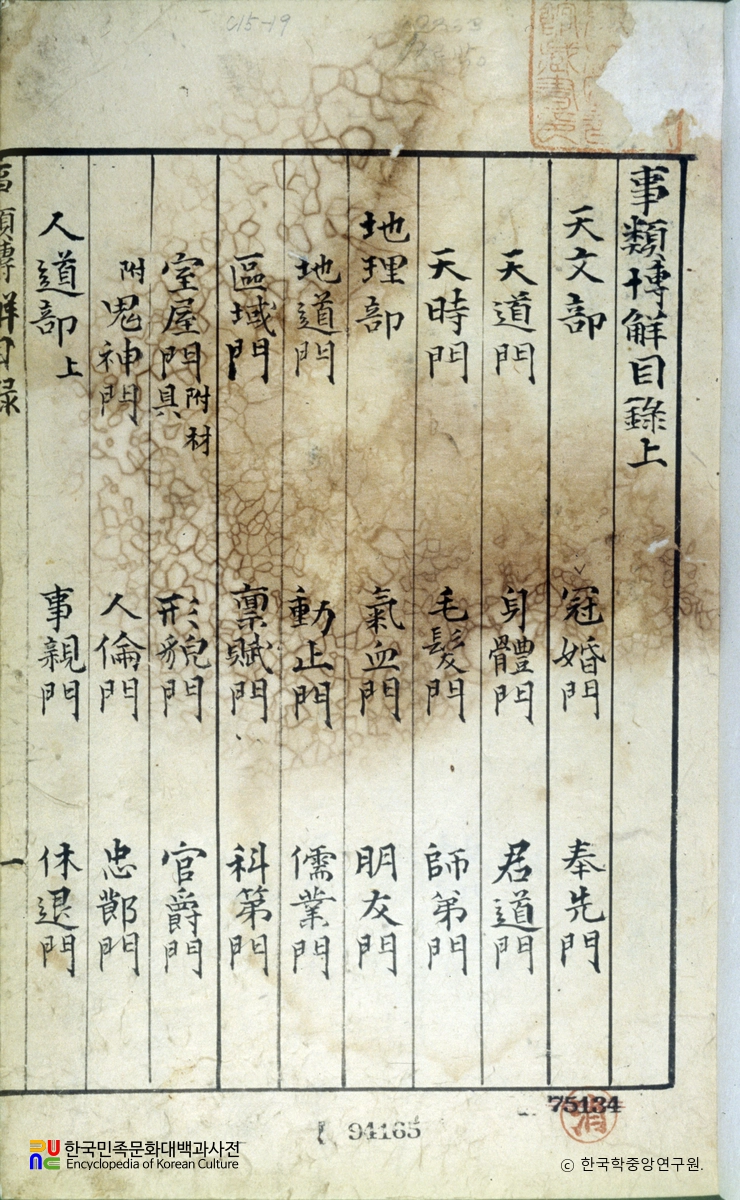 事類博觧目錄上
天文部 冠婚門 奉先門
天道門 身體門 君道門
天時門 毛髮門 師弟門
地理部 氣血門 朋友門
地道門 動止門 儒業門
區域門 稟賦門 科第門
室屋門附材具 形貌門 官爵門
附鬼神門 人倫門 忠節門
人道部上 事親門 休退門
類博觧目錄 一
C15-19
75134
94165
한국민족문화대백과사전
Encyclopedia of Korean Culture
© 한국학중앙연구원.